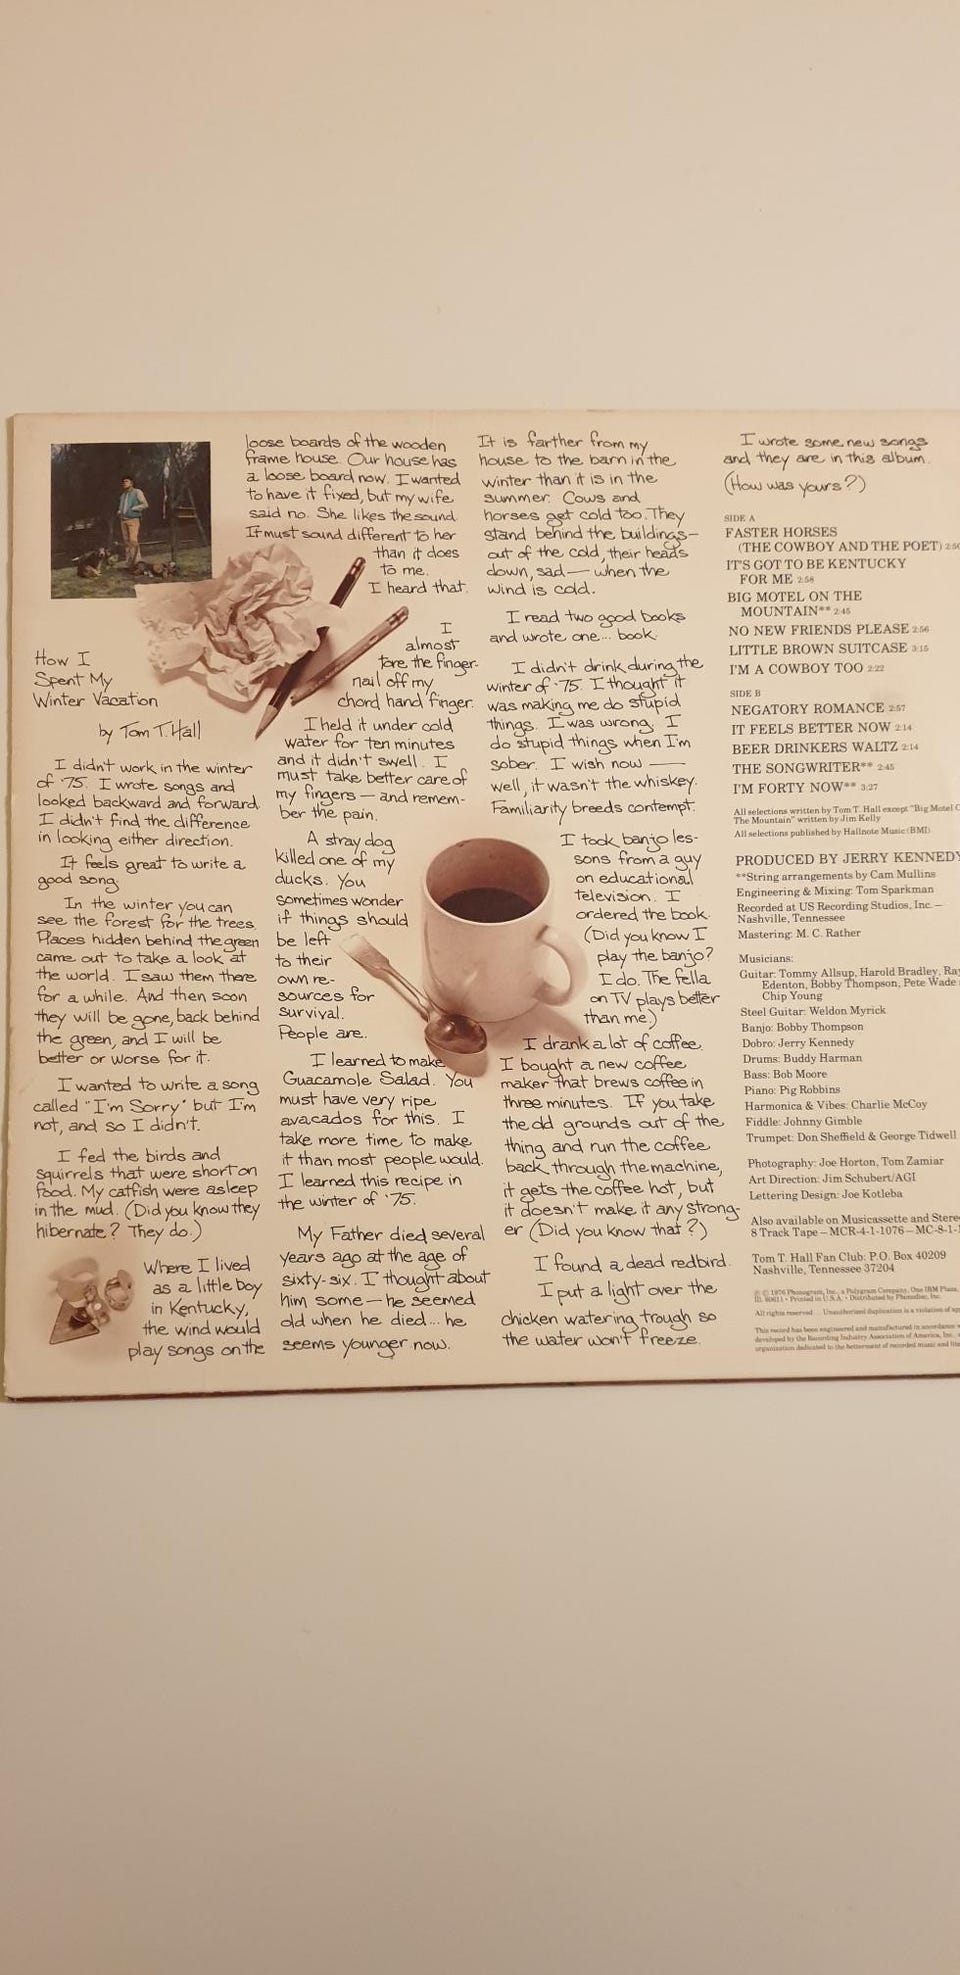 How I
Spent My
Winter Vacation
by Tom T. Hall
I didn't work in the winter
of '75. I wrote songs and
looked backward and forward.
I didn't find the difference
in looking either direction.
It feels great to write a
good song.
In the winter you can
see the forest for the trees.
Places hidden behind the green
came out to take a look at
the world. I saw them there
for a while. And then soon
they will be gone, back behind
the green, and I will be
better or worse for it.
I wanted to write a song
called "I'm Sorry" but I'm
not, and so I didn't.
I fed the birds and
squirrels that were short on
food. My catfish were asleep
in the mud. (Did you know they
hibernate? They do.)
Where I lived
as a little boy
in Kentucky,
the wind would
play songs on the
loose boards of the wooden
frame house. Our house has
a loose board now. I wanted
to have it fixed, but my wife
said no. She likes the sound.
It must sound different to her
than it does
to me.
I heard that.
I
almost
tore the finger-
nail off my
chord hand finger.
I held it under cold
water for ten minutes
and it didn't swell. I
must take better care of
my fingers — and remem-
ber the pain.
A stray dog
killed one of my
ducks. You
sometimes wonder
if things should
be left
to their
own re-
sources for
survival.
People are.
I learned to make
Guacamole Salad. You
must have very ripe
avacados for this. I
take more time to make
it than most people would.
I learned this recipe in
the winter of '75.
My Father died several
years ago at the age of
sixty-six. I thought about
him some — he seemed
old when he died... he
seems younger now.
It is farther from my
house to the barn in the
winter than it is in the
summer. Cows and
horses get cold too. They
stand behind the buildings—
out of the cold, their heads
down, sad — when the
wind is cold.
I read two good books
and wrote one... book.
I didn't drink during the
winter of '75. I thought it
was making me do stupid
things. I was wrong. I
do stupid things when I'm
sober. I wish now —
well, it wasn't the whiskey.
Familiarity breeds contempt.
I took banjo les-
sons from a guy
on educational
television. I
ordered the book.
(Did you know I
play the banjo?
I do. The fella
on TV plays better
than me.)
I drank a lot of coffee.
I bought a new coffee
maker that brews coffee in
three minutes. If you take
the old grounds out of the
thing and run the coffee
back through the machine,
it gets the coffee hot, but
it doesn't make it any strong-
er (Did you know that?)
I found a dead redbird.
I put a light over the
chicken watering trough so
the water won't freeze.
I wrote some new songs
and they are in this album.
(How was yours?)
SIDE A
FASTER HORSES
(THE COWBOY AND THE POET)
IT'S GOT TO BE KENTUCKY
FOR ME 2:58
BIG MOTEL ON THE
MOUNTAIN** 2:45
NO NEW FRIENDS PLEASE 2:56
LITTLE BROWN SUITCASE 3:15
I'M A COWBOY TOO 2:22
SIDE B
NEGATORY ROMANCE 2:57
IT FEELS BETTER NOW 2:14
BEER DRINKERS WALTZ 2:14
THE SONGWRITER** 2:45
I'M FORTY NOW** 3:27
All selections written by Tom T. Hall except "Big Motel
The Mountain" written by Jim Kelly
All selections published by Hallnote Music (BMI)
PRODUCED BY JERRY KENNEDY
**String arrangements by Cam Mullins
Engineering & Mixing: Tom Sparkman
Recorded at US Recording Studios, Inc.—
Nashville, Tennessee
Mastering: M. C. Rather
Musicians:
Guitar: Tommy Allsup, Harold Bradley, Ray
Edenton, Bobby Thompson, Pete Wade
Chip Young
Steel Guitar: Weldon Myrick
Banjo: Bobby Thompson
Dobro: Jerry Kennedy
Drums: Buddy Harman
Bass: Bob Moore
Piano: Pig Robbins
Harmonica & Vibes: Charlie McCoy
Fiddle: Johnny Gimble
Trumpet: Don Sheffield & George Tidwell
Photography: Joe Horton, Tom Zamiar
Art Direction: Jim Schubert/AGI
Lettering Design: Joe Kotleba
Also available on Musicassette and Stere
8 Track Tape – MCR-4-1-1076 – MC-8-1-1
Tom T. Hall Fan Club: P.O. Box 40209
Nashville, Tennessee 37204
℗ © 1976 Phonogram, Inc., a Polygram Company, One IBM Plaza,
Ill. 60611 • Printed in U.S.A. • Distributed by Phonodisc, Inc.
All rights reserved. Unauthorized duplication is a violation of
This record has been engineered and manufactured in accordance
developed by the Recording Industry Association of America, Inc.,
organization dedicated to the betterment of recorded music and